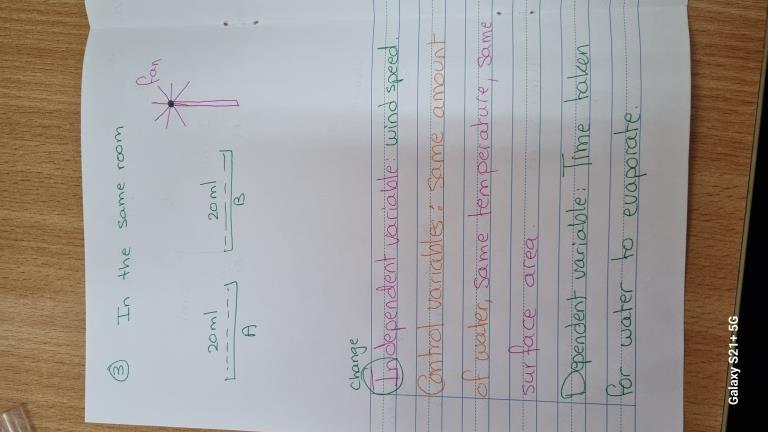 ③ In the same room
fan
20ml 20ml
A B
change
Independent variable: wind speed.
Control variables: same amount
of water, same temperature, same
surface area.
Dependent variable: Time taken
for water to evaporate.
Galaxy S21+ 5G